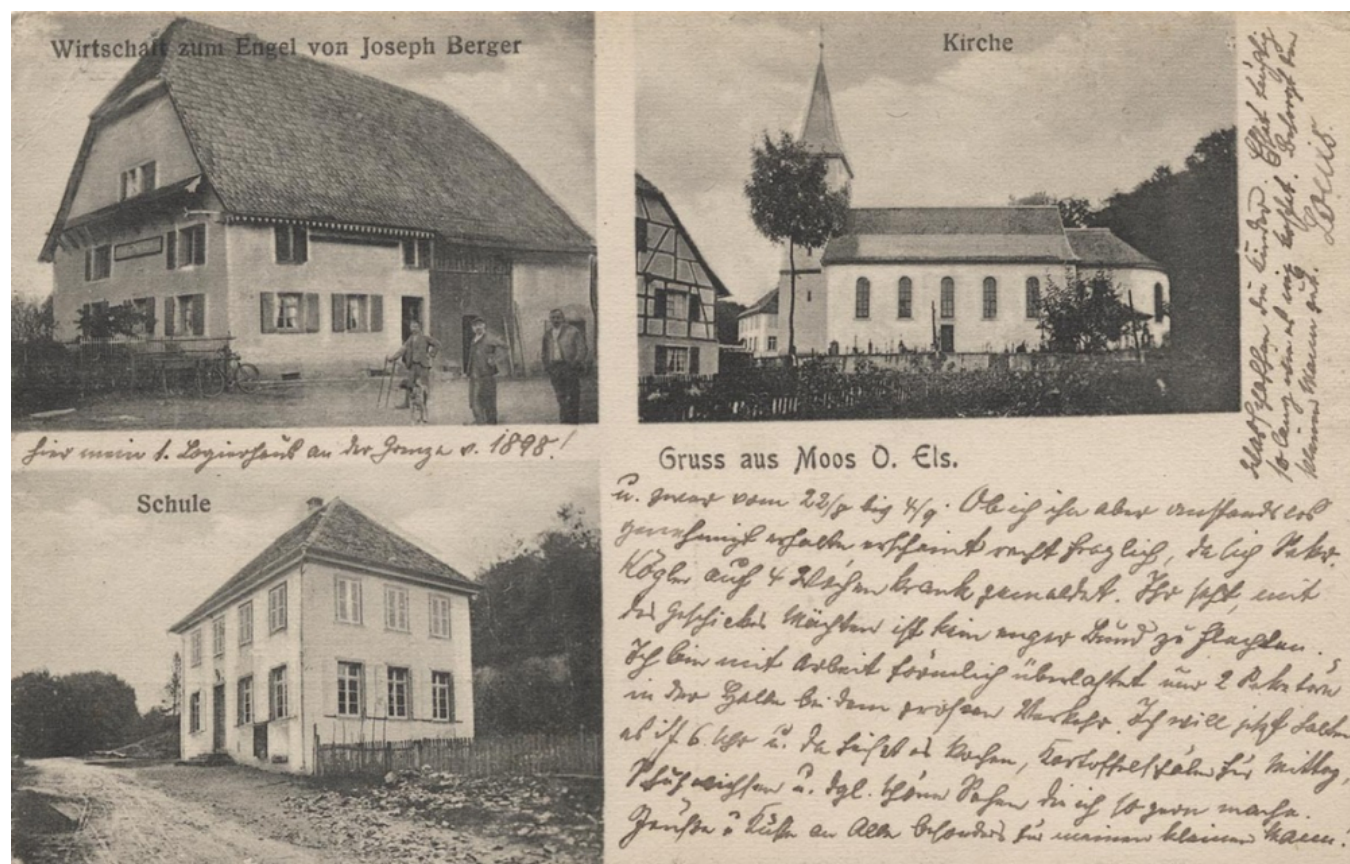 Wirtschaft zum Engel von Joseph Berger
Kirche
hier mein 1. Logierhaus an der Grenze v. 1898!
Schule
Gruss aus Moos O. Els.
u. zwar vom 22/8 bis 4/9. Ob ich ihn aber anstandslos
genehmigt erhalte erscheint recht fraglich, da sich
Kögler auf 4 Wochen krank gemeldet. Ihr seht, mit
des Geschickes Mächten ist kein enger Bund zu flechten.
Ich bin mit Arbeit förmlich überlastet nur 2
in der Halle bei dem großen Verkehr. Ich will jetzt
es ist 6 Uhr u. da heißt es kochen, Kartoffelschälen für Mittag,
Schuhwichsen u. dgl. schöne Sachen die ich so gern mache.
Grüße u Küsse an Alle besonders für meinen kleinen Mann!
die Kinder
so lang
kleinen Mann gut. Louis.